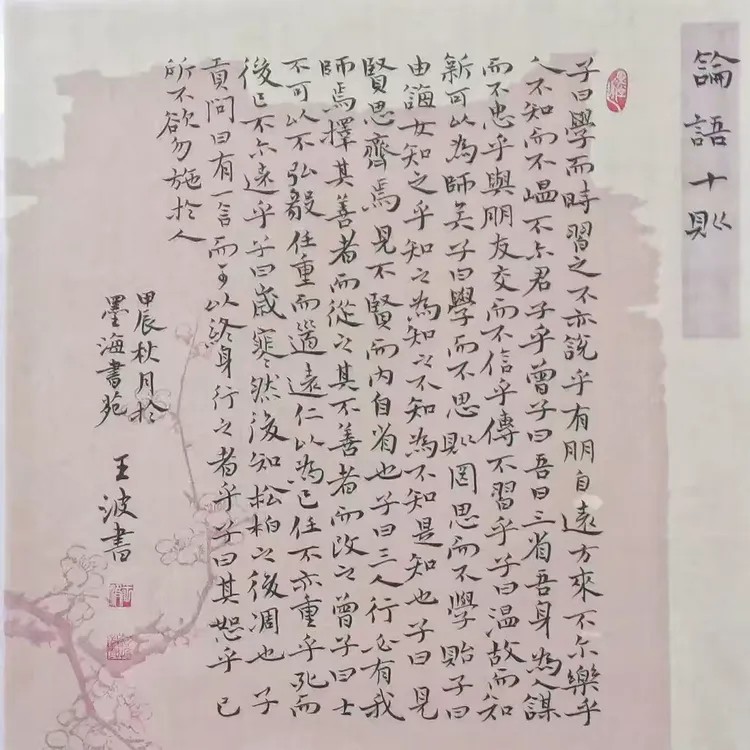 論語十則
子曰學而時習之不亦說乎有朋自遠方來不亦樂乎
人不知而不愠不亦君子乎曾子曰吾日三省吾身為人謀
而不忠乎與朋友交而不信乎傳不習乎子曰温故而知
新可以為師矣子曰學而不思則罔思而不學殆子曰
由誨女知之乎知之為知之不知為不知是知也子曰見
賢思齊焉見不賢而內自省也子曰三人行必有我
師焉擇其善者而從之其不善者而改之曾子曰士
不可以不弘毅任重而道遠仁以為己任不亦重乎死而
後已不亦遠乎子曰歲寒然後知松柏之後凋也子
貢問曰有一言而可以終身行之者乎子曰其恕乎己
所不欲勿施於人
甲辰秋月於
墨海書苑
王波書